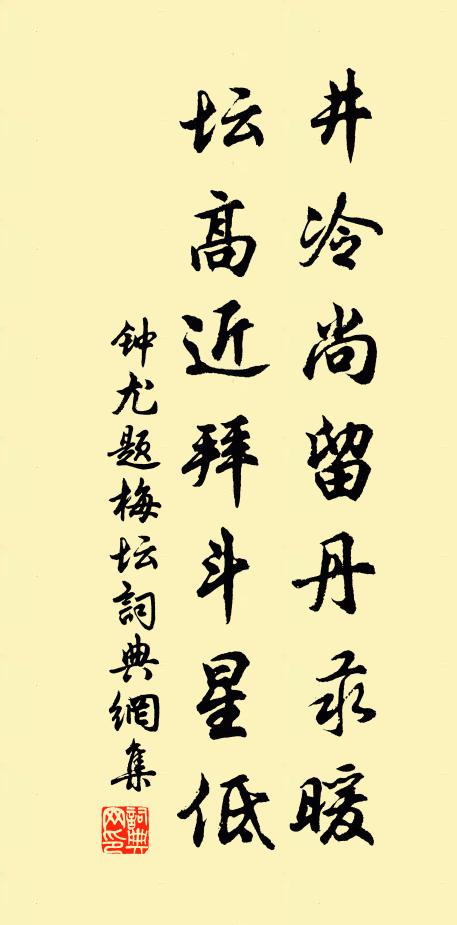 井冷尚留丹汞暖
坛高近拜斗星低
钟尤题梅坛詞典網集
詞典
网印